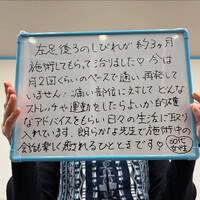 左足後ろのしびれが約3ヶ月
施術してもらって治りました♡今は
月2回くらいのペースで通い再発して
いません!痛い部位に対してどんな
ストレッチや運動をしたらよいか的確
なアドバイスをもらい日々の生活に取り
入れています。朗らかな先生で施術中の
会話も楽しく癒されるひとときです♡
60代
女性